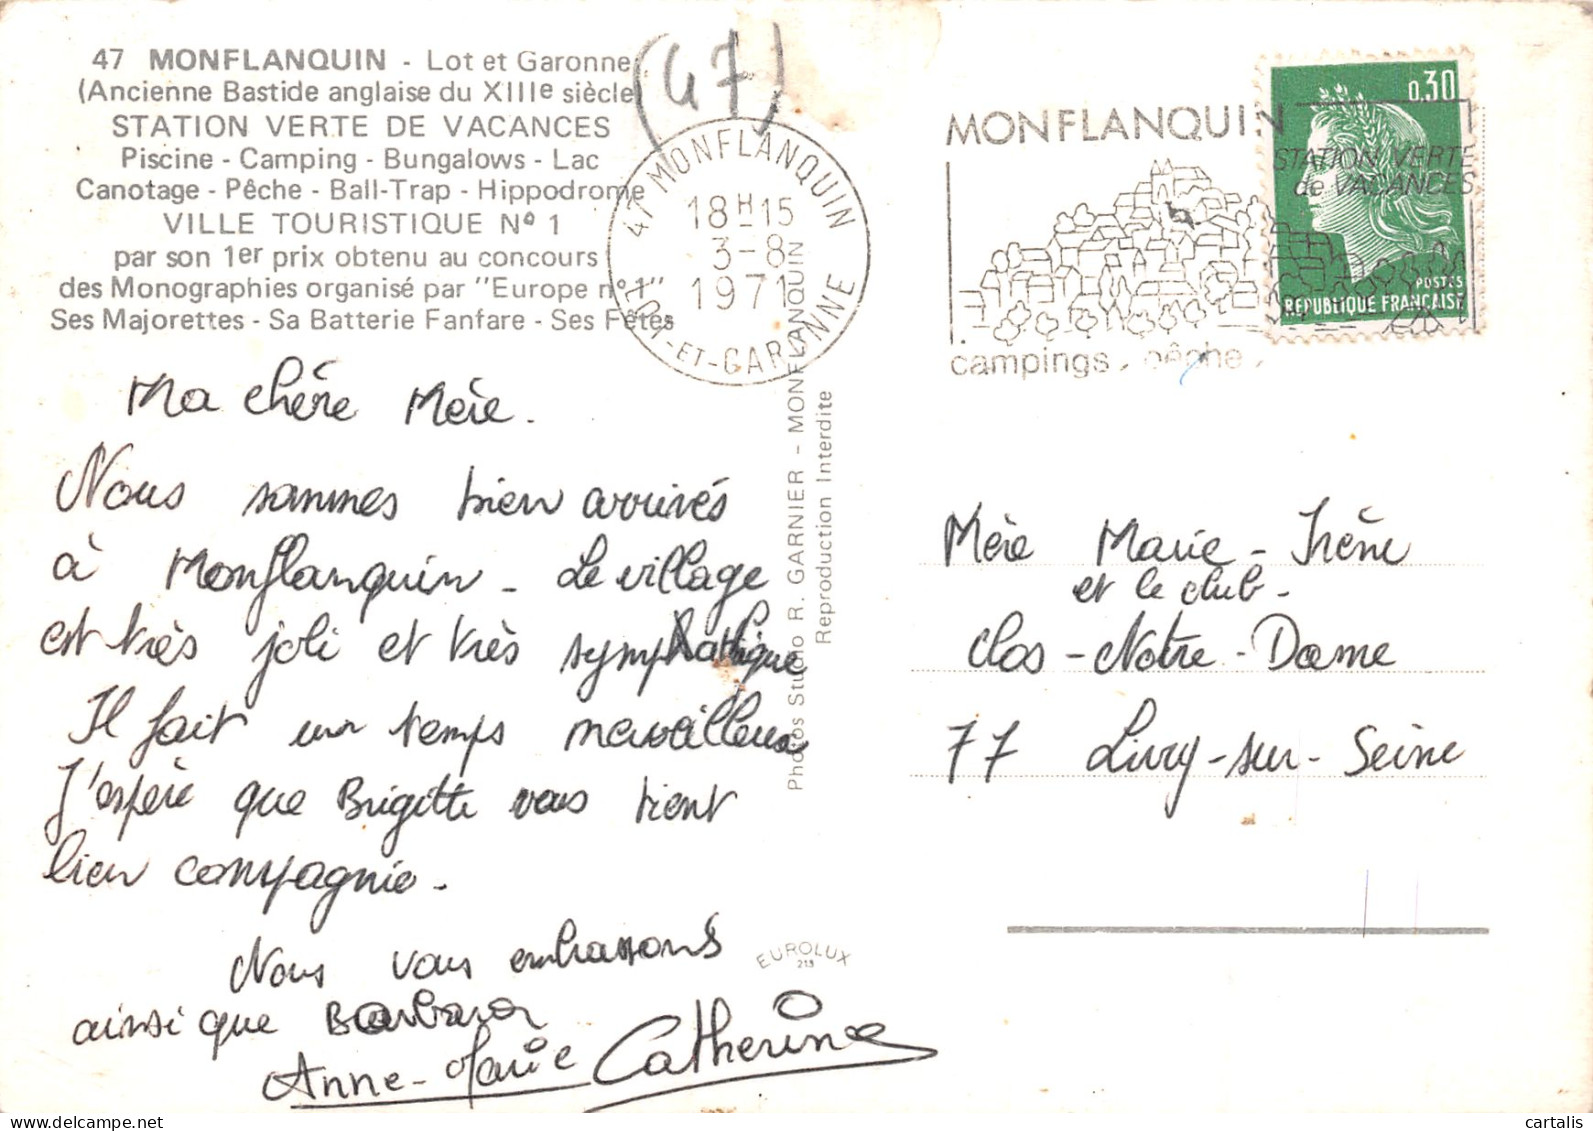 47 MONFLANQUIN - Lot et Garonne
(Ancienne Bastide anglaise du XIIIe siècle
STATION VERTE DE VACANCES
Piscine - Camping - Bungalows - Lac
Canotage - Pêche - Ball-Trap - Hippodrome
VILLE TOURISTIQUE N° 1
par son 1er prix obtenu au concours
des Monographies organisé par "Europe n° 1"
Ses Majorettes - Sa Batterie Fanfare - Ses Fêtes
(47)
47 MONFLANQUIN
18H15
3-8
1971
LOT-ET-GARONNE
MONFLANQUIN
STATION VERTE
de VACANCES
campings, pêche,
0,30
POSTES
REPUBLIQUE FRANÇAISE
Ma chére Mère.
Nous sommes bien arrivés
à Monflanquin - Le village
est très joli et très symphathique
Il fait un temps merveilleux
J'espère que Brigitte vous tient
bien compagnie.
Nous vous embrassons
ainsi que Barbara
Anne-Marie Catherine
Photos Studio R. GARNIER - MONFLANQUIN
Reproduction Interdite
EUROLUX
213
Mère Marie-Irène
et le club.
Clos-Notre-Dame
77 Livry-sur-Seine
cartalis